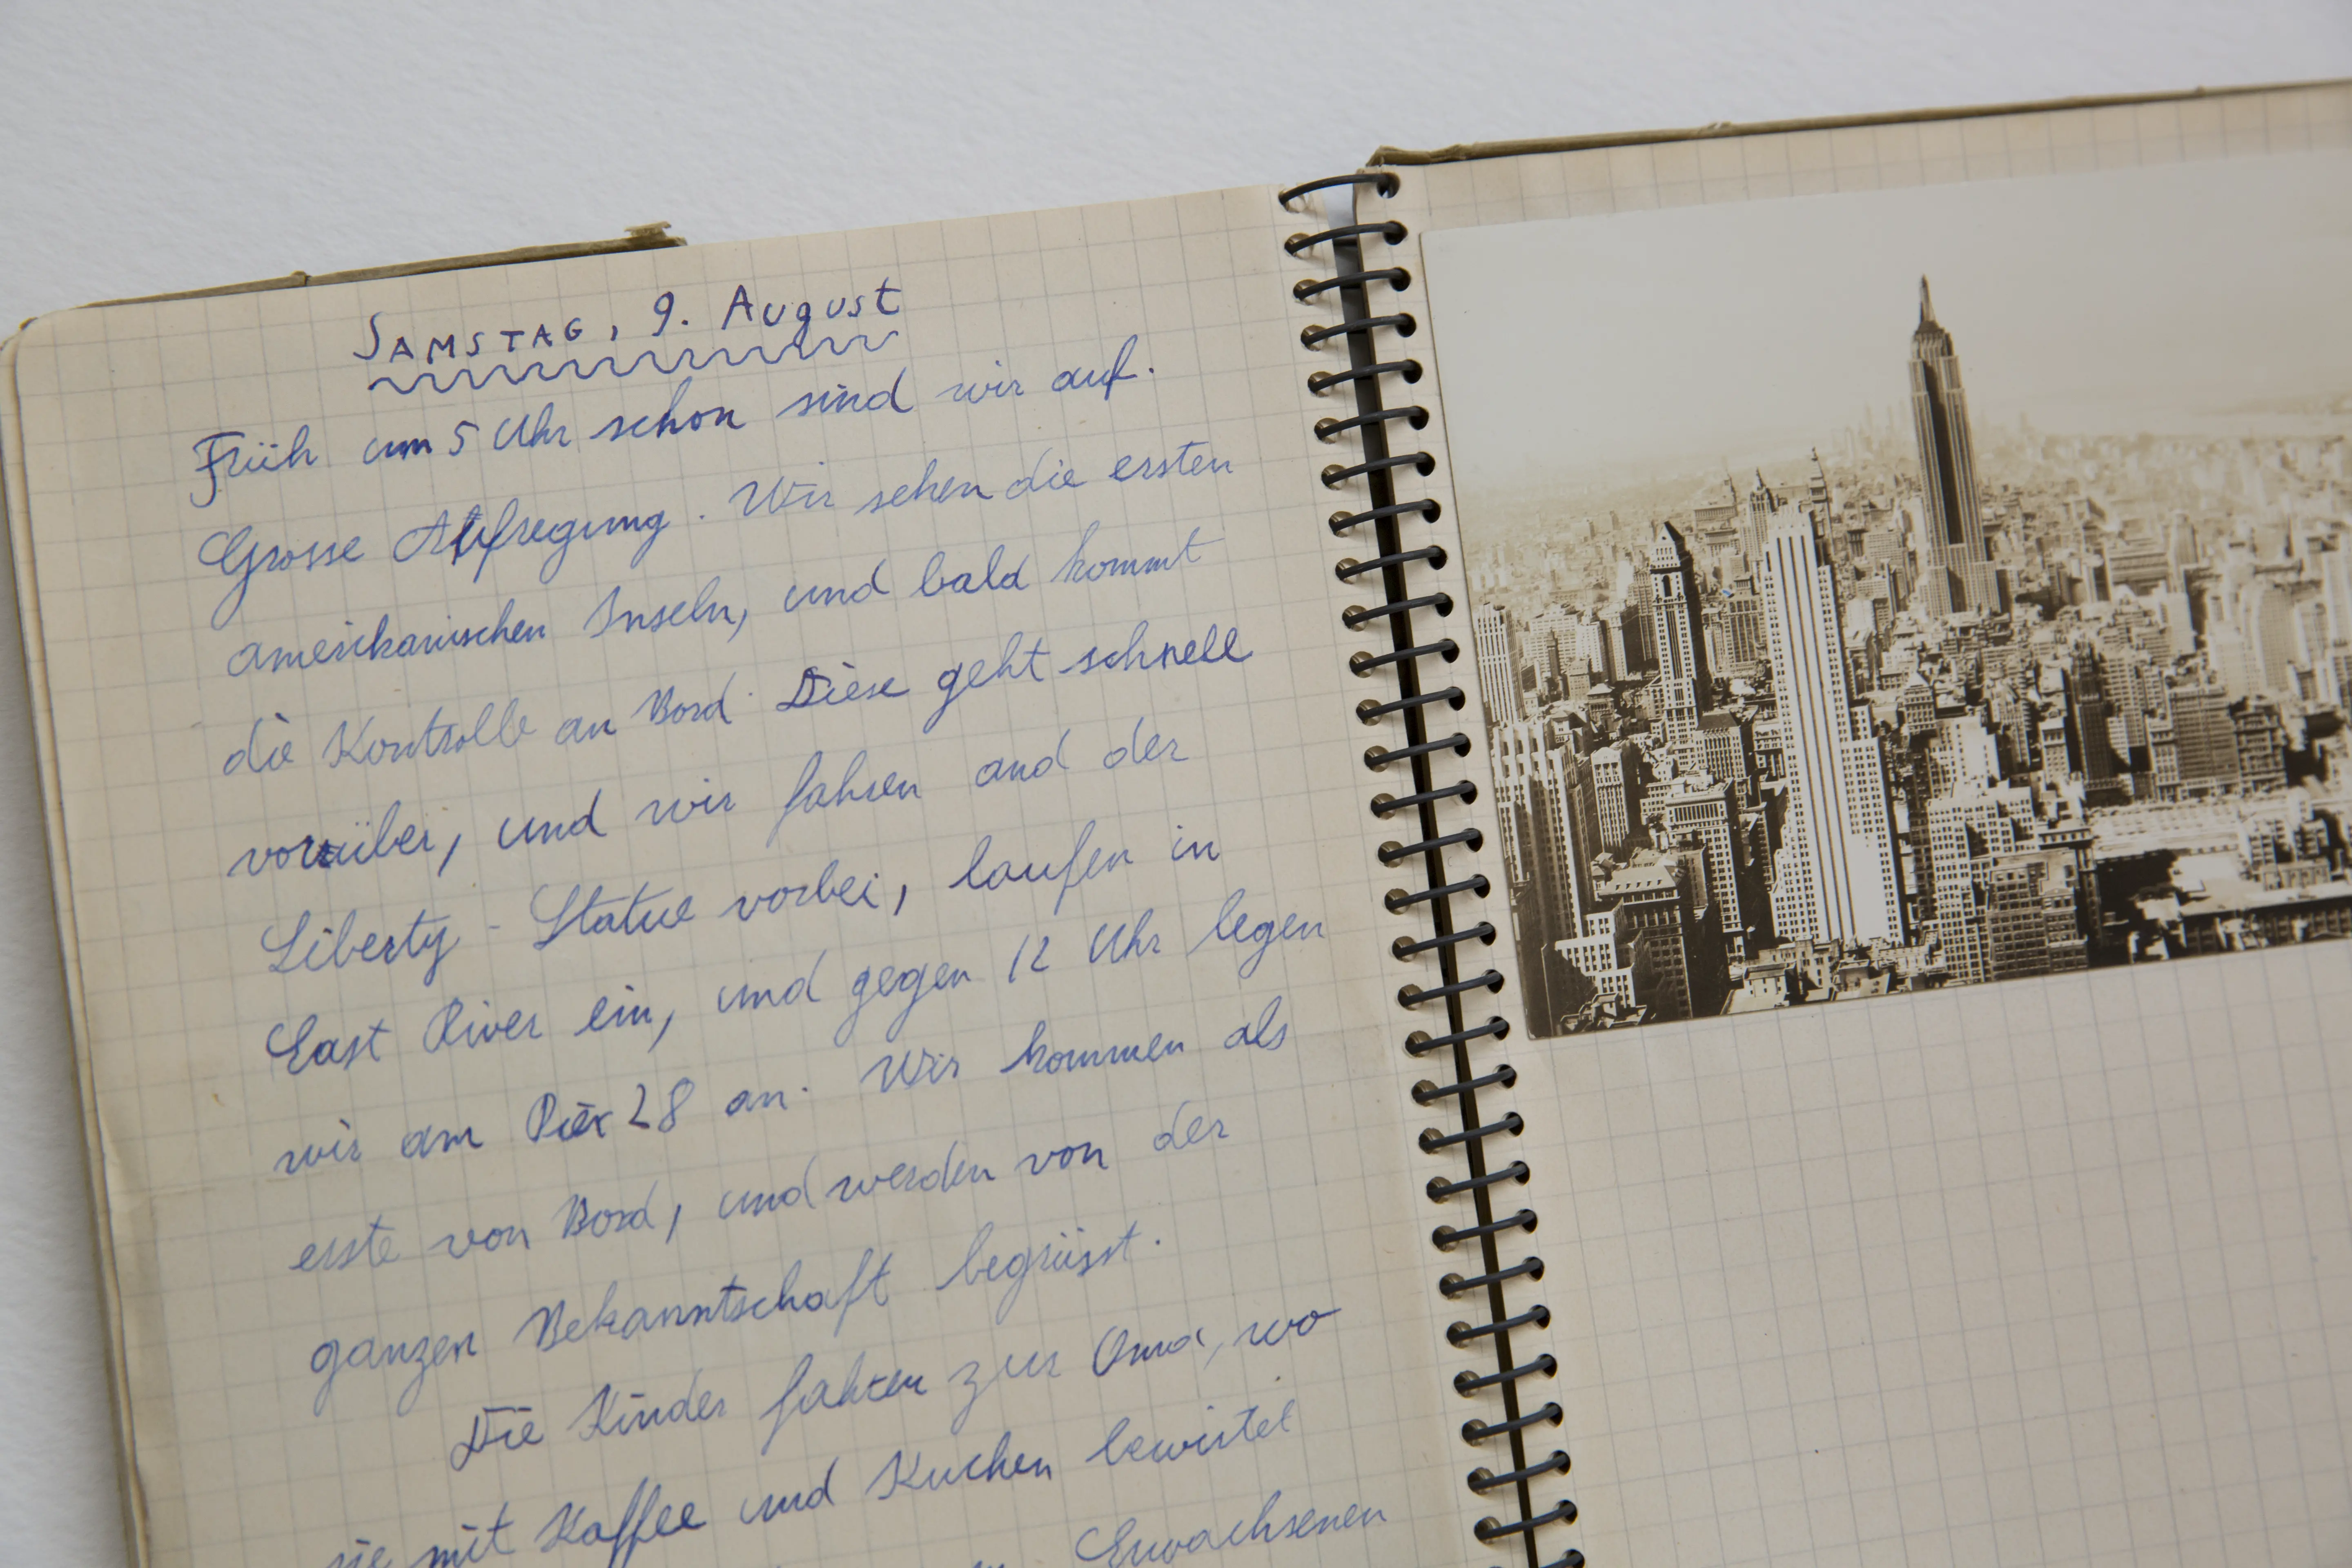 SAMSTAG, 9. August
Früh um 5 Uhr schon sind wir auf.
Grosse Aufregung. Wir sehen die ersten
amerikanischen Inseln, und bald kommt
die Kontrolle an Bord. Diese geht schnell
vorüber, und wir fahren and der
Liberty-Statue vorbei, laufen in
East River ein, und gegen 12 Uhr legen
wir am Pier 28 an. Wir kommen als
erste von Bord, und werden von der
ganzen Bekanntschaft begrüsst.
Die Kinder fahren zur Oma, wo
sie mit Kaffee und Kuchen bewirtet
Erwachsenen